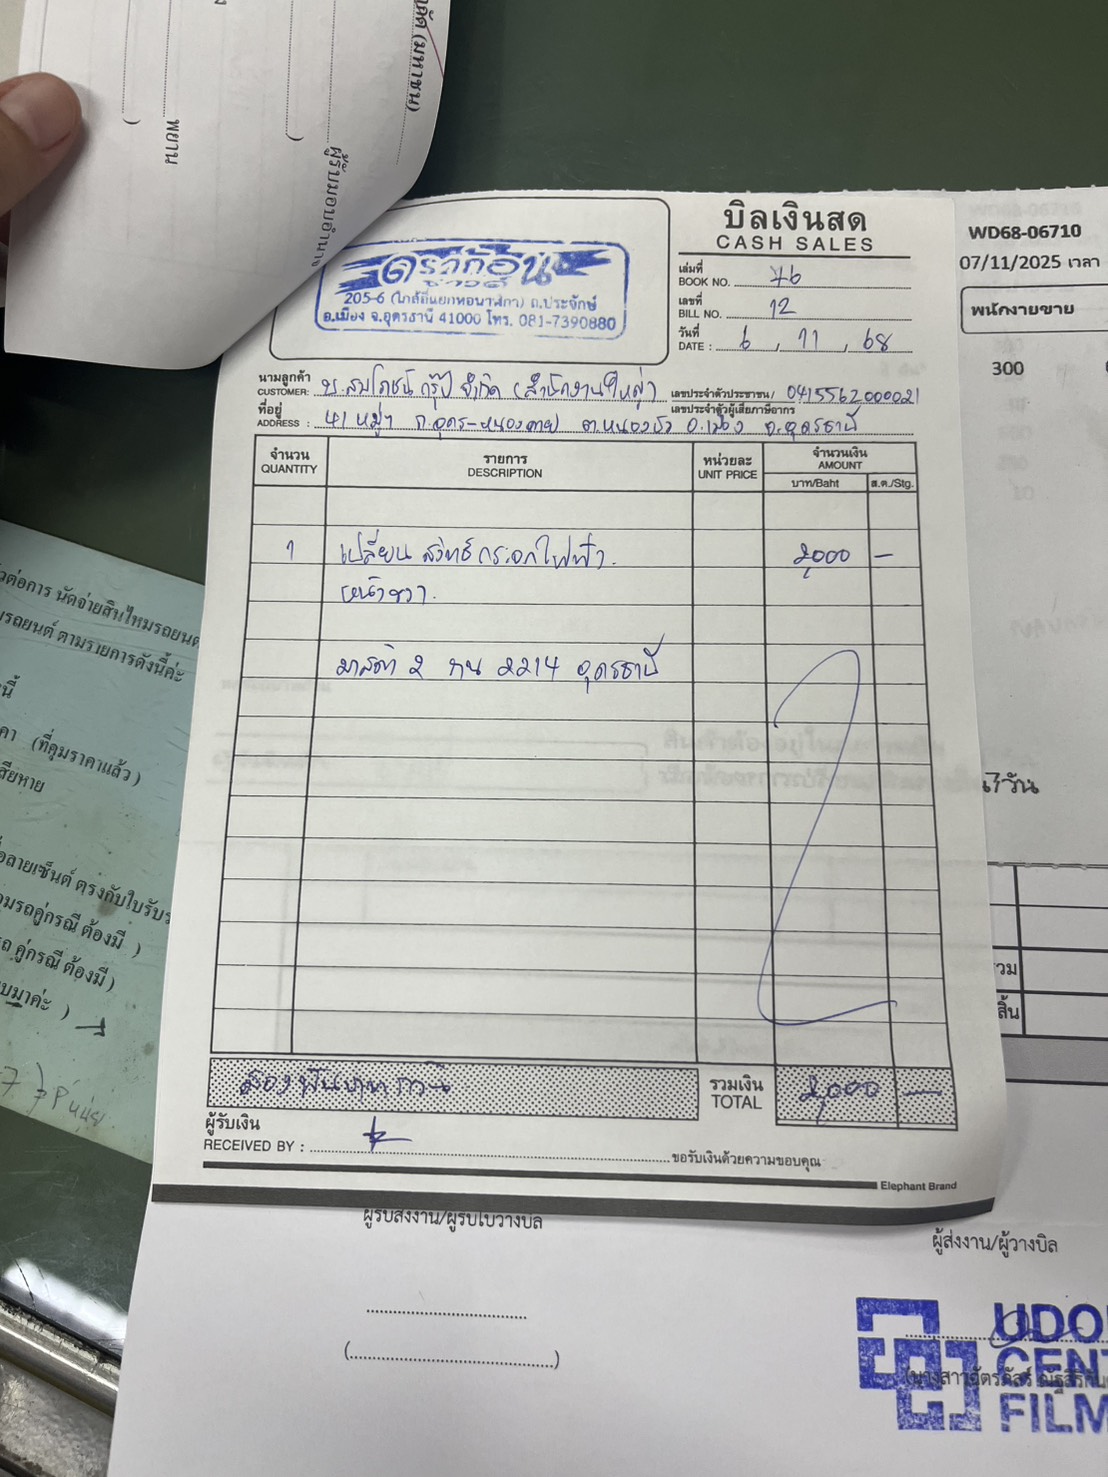 (มหาชน)
ผู้รับมอบอำนาจ
พยาน
ดราก้อน
ซาวด์
205-6 (ใกล้สี่แยกหอนาฬิกา) ถ.ประจักษ์
อ.เมือง จ.อุดรธานี 41000 โทร. 081-7390880
บิลเงินสด
CASH SALES
เล่มที่
BOOK NO. 76
เลขที่
BILL NO. 12
วันที่
DATE : 6 , 11 , 68
นามลูกค้า
CUSTOMER: บ.สมโภชน์ กรุ๊ป จำกัด (สำนักงานใหญ่) เลขประจำตัวประชาชน/ 0415562000021
เลขประจำตัวผู้เสียภาษีอากร
ที่อยู่
ADDRESS : 41 หมู่ 7 ถ.อุดร-หนองคาย ต.หนองบัว อ.เมือง จ.อุดรธานี
จำนวน รายการ หน่วยละ จำนวนเงิน
QUANTITY DESCRIPTION UNIT PRICE AMOUNT
บาท/Baht ส.ต./Stg.
1 เปลี่ยน สวิทช์กระจกไฟฟ้า 2,000 –
หน้าขวา
มาสด้า 2 กน 2214 อุดรธานี
สองพันบาทถ้วน รวมเงิน 2,000 –
TOTAL
ผู้รับเงิน
RECEIVED BY :
ขอรับเงินด้วยความขอบคุณ
Elephant Brand
WD68-06710
07/11/2025 เวลา
พนักงานขาย
300
7 วัน
รวม
สิ้น
วต่อการ นัดจ่ายสินไหมรถยนต์
รถยนต์ ตามรายการดังนี้ค่ะ
นี้
คา (ที่คุมราคาแล้ว)
สียหาย
อลายเซ็นต์ ตรงกับใบรับร
มรถคู่กรณี ต้องมี )
ถ คู่กรณี ต้องมี)
บมาค่ะ )
ผู้รับส่งงาน/ผู้รับใบวางบิล
(..........)
ผู้ส่งงาน/ผู้วางบิล
UDO
CENT
FILM